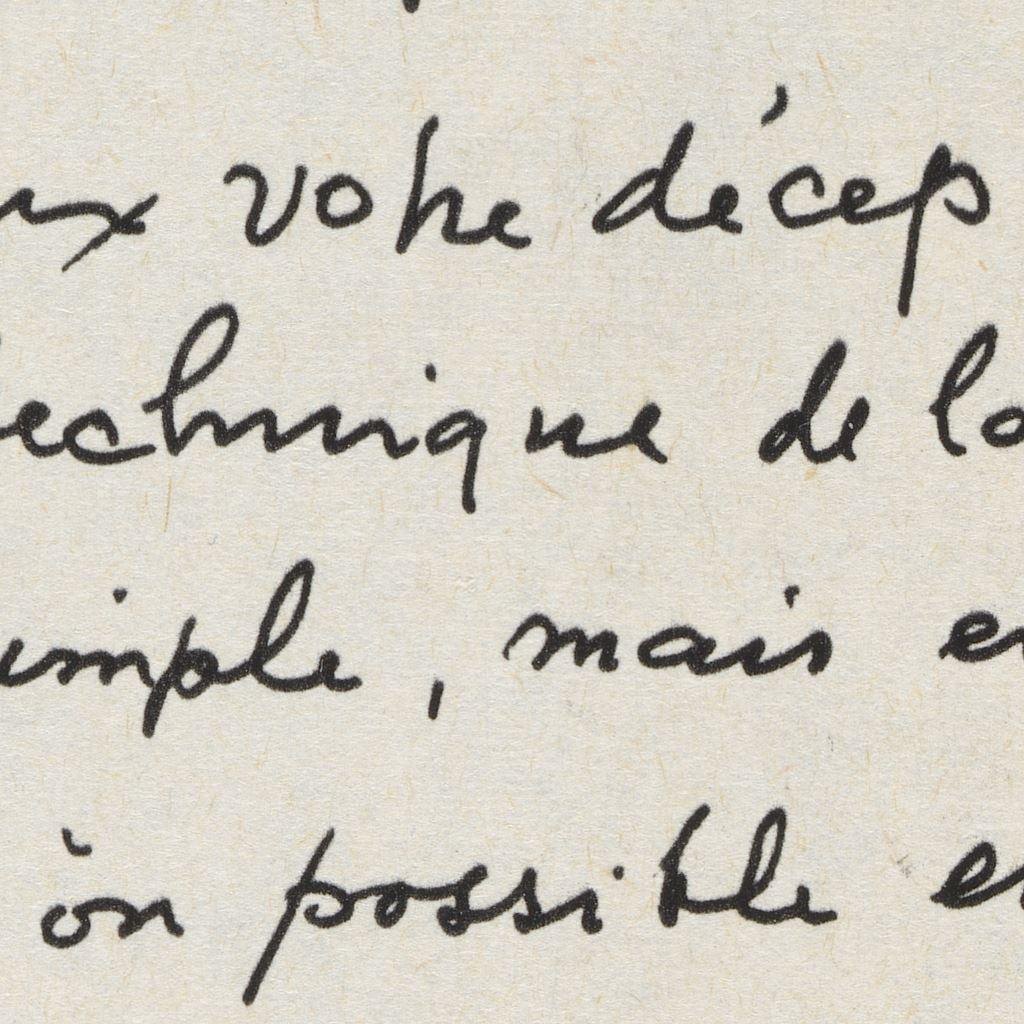 ux votre décep
technique de la
imple, mais en
on possible en